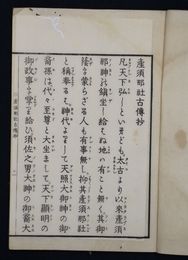 産須那社古傳抄
凡天下弘しといへども太古より以来産須
那神の鎮坐し給はぬ地の有こと無く其御
蔭を蒙らざる人も有事無し抑其産須那社
と稱奉るは神代よりして天照大御神の御
裔孫は代々至尊と大坐まして天下顕明の
御政事を掌給ひ須佐之男大神の御裔大